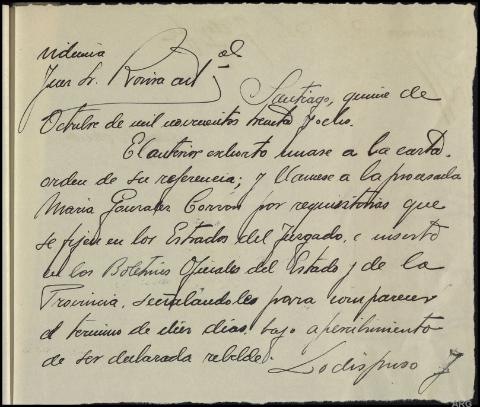 videncia
Juez Sr.
Santiago, quince de
Octubre de mil novecientos treinta y ocho.
El anterior exhorto unase a la carta-
orden de su referencia; y llamese a la procesada
Maria Gonzalez Corron por requisitorias que
se fijen en los Estrados del Juzgado, e inserto
en los Boletines Oficiales del Estado y de la
Provincia, señalandoles para comparecer
el termino de diez dias, bajo apercibimiento
de ser declarada rebelde.
Lo dispuso y
ARG